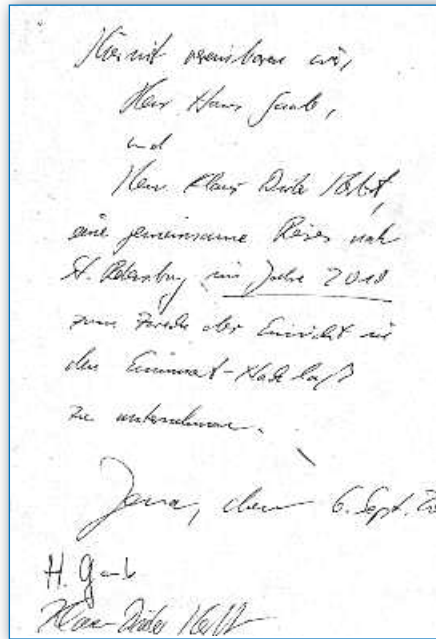 Hiermit vereinbaren wir,
Herr Hans Gaab,
und
Herr Klaus Dieter Herbst,
eine gemeinsame Reise nach
St. Petersburg im Jahre 2018
zum Zwecke der Einsicht in
den Eimmart-Nachlaß
zu unternehmen.
Jena, den 6. Sept. 20
H. Gaab
Klaus-Dieter Herbst